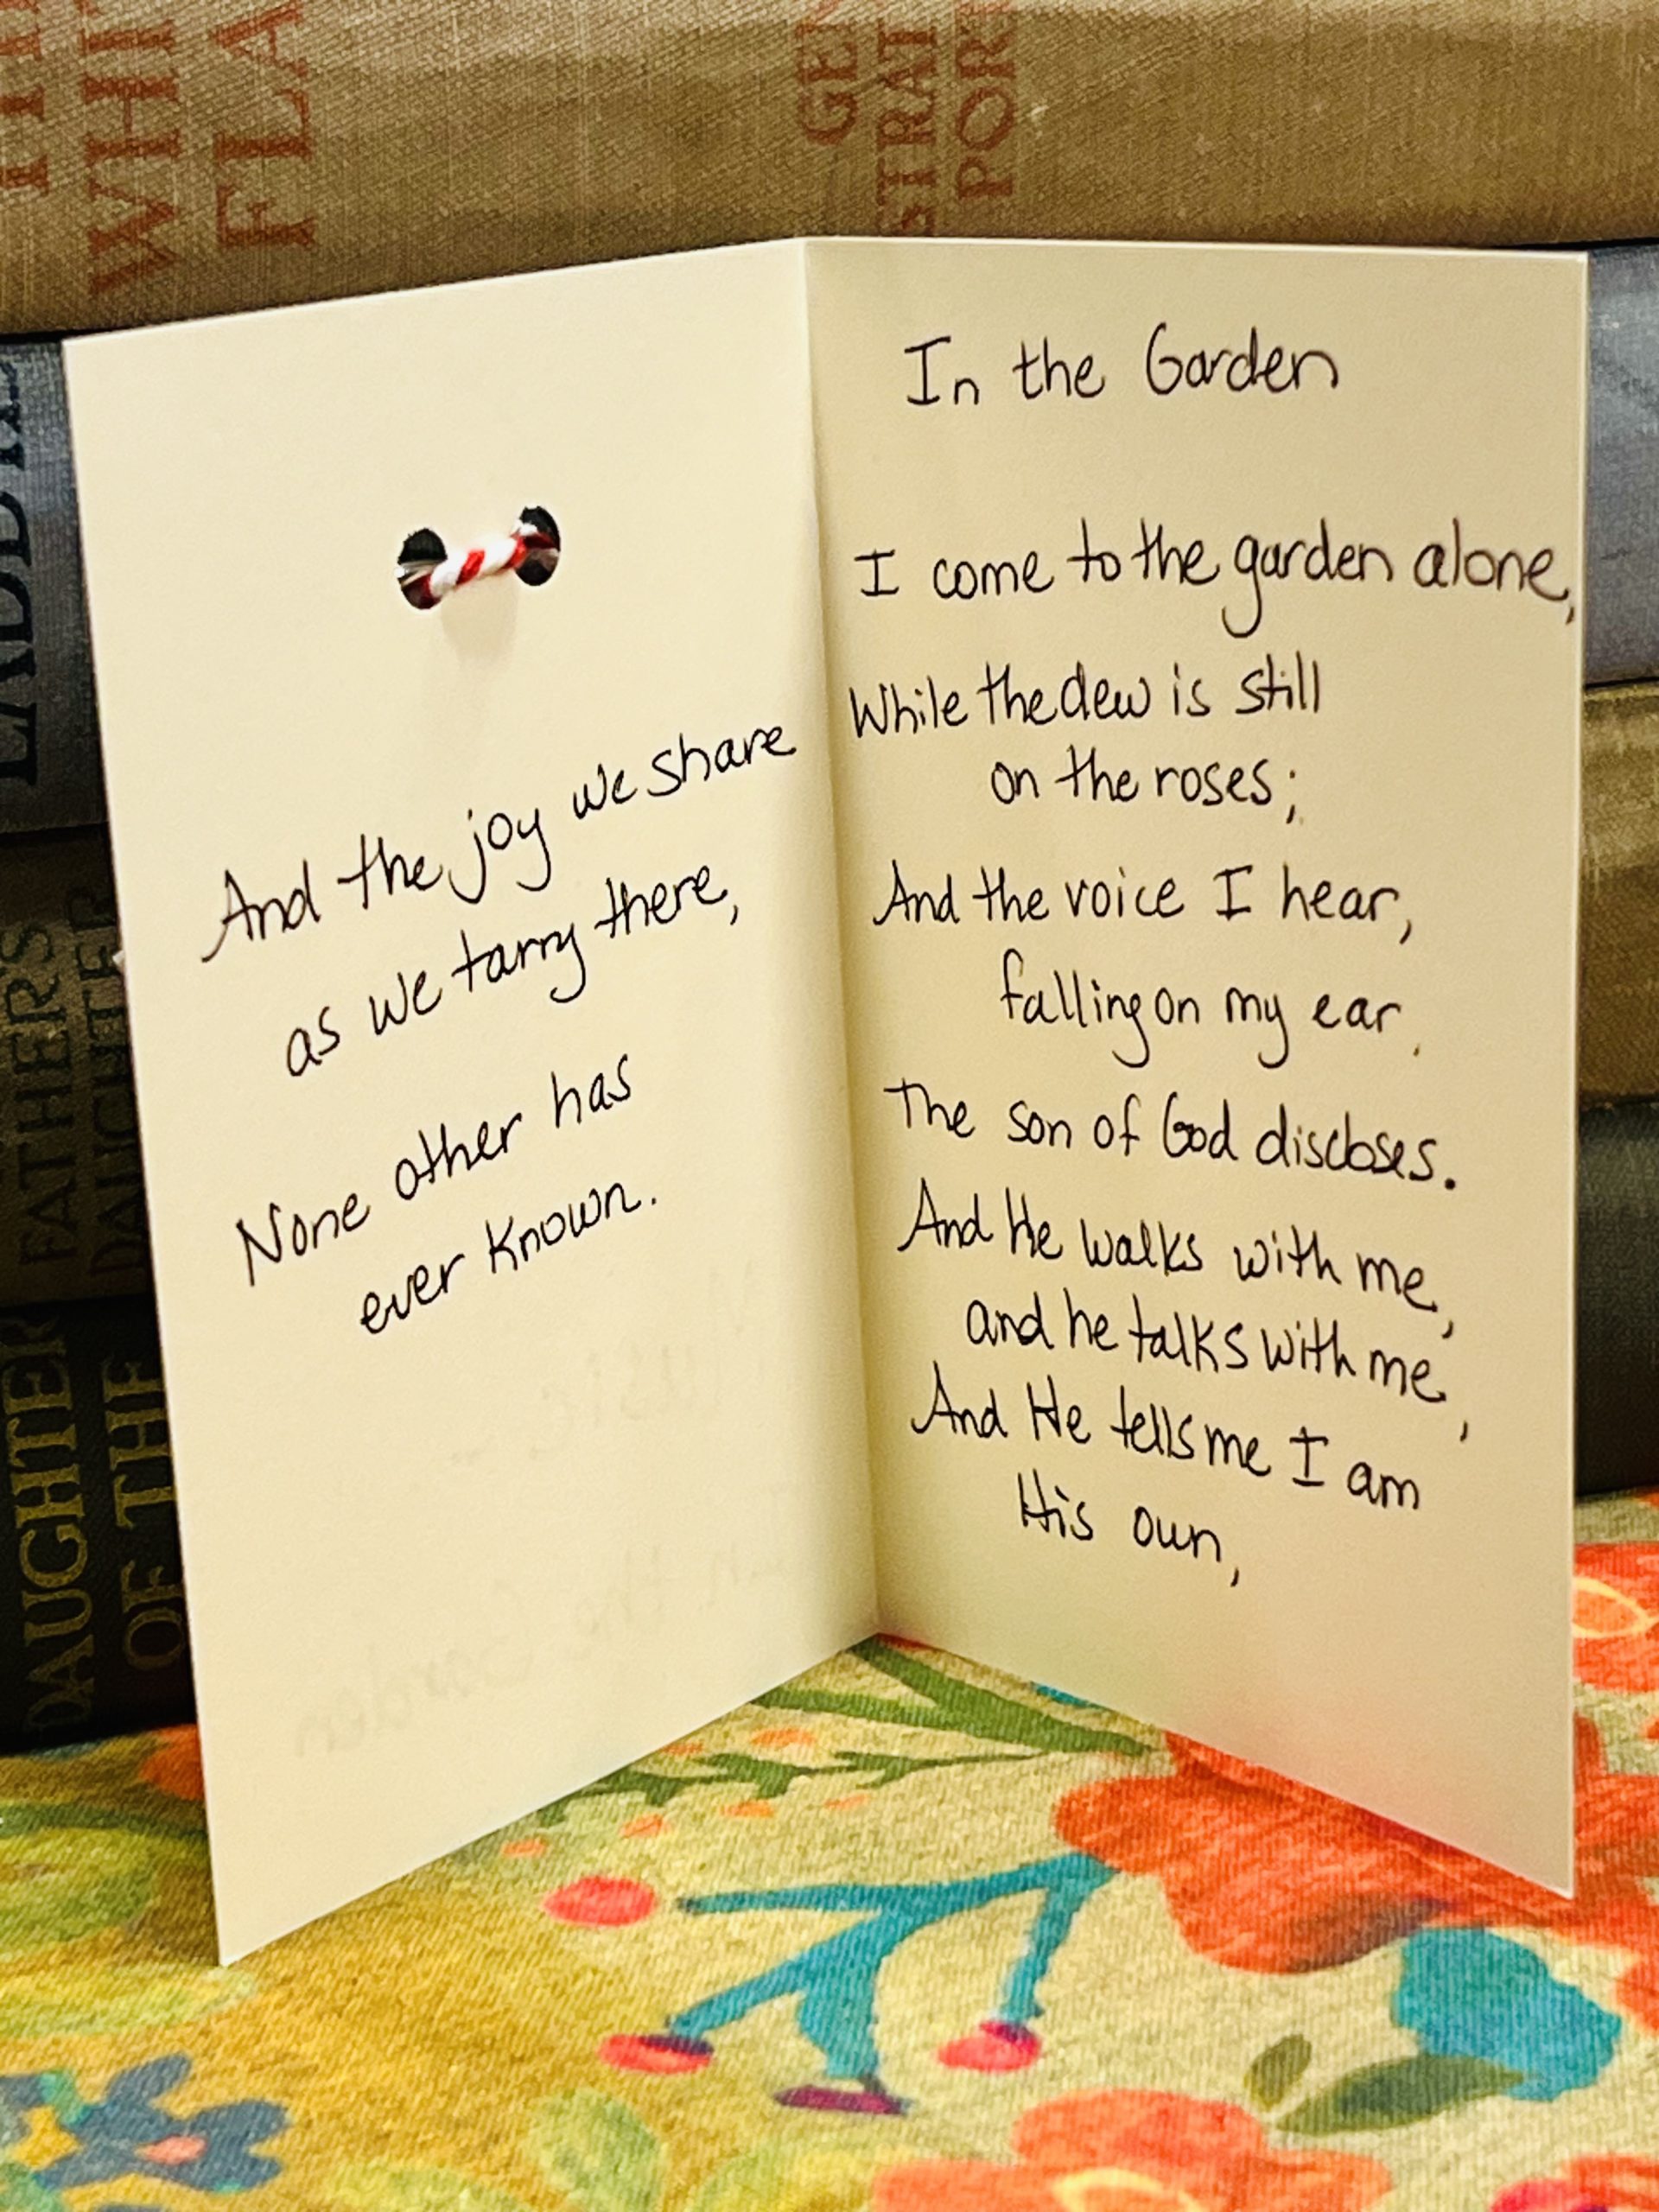 WHI
FLA
GEN
STRAT
POR
In the Garden
I come to the garden alone,
While the dew is still
on the roses;
And the voice I hear,
falling on my ear,
The son of God discloses.
And He walks with me,
and he talks with me,
And He tells me I am
His own,
And the joy we share
as we tarry there,
None other has
ever known.
FATHERS
DAUGHTER
DAUGHTER
OF THE